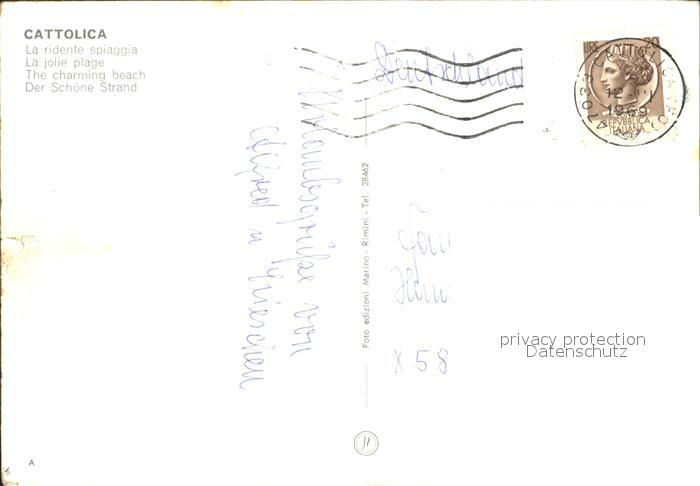 CATTOLICA
La ridente spiaggia
La jolie plage
The charming beach
Der Schöne Strand
Deutschland
Urlaubsgrüße von
Alfred u
Foto edizioni Marino - Rimini - Tel. 28462
LIRE 20
REPVBBLICA
ITALIANA
CATTOLICA
12
1969
X 58
privacy protection
Datenschutz
A